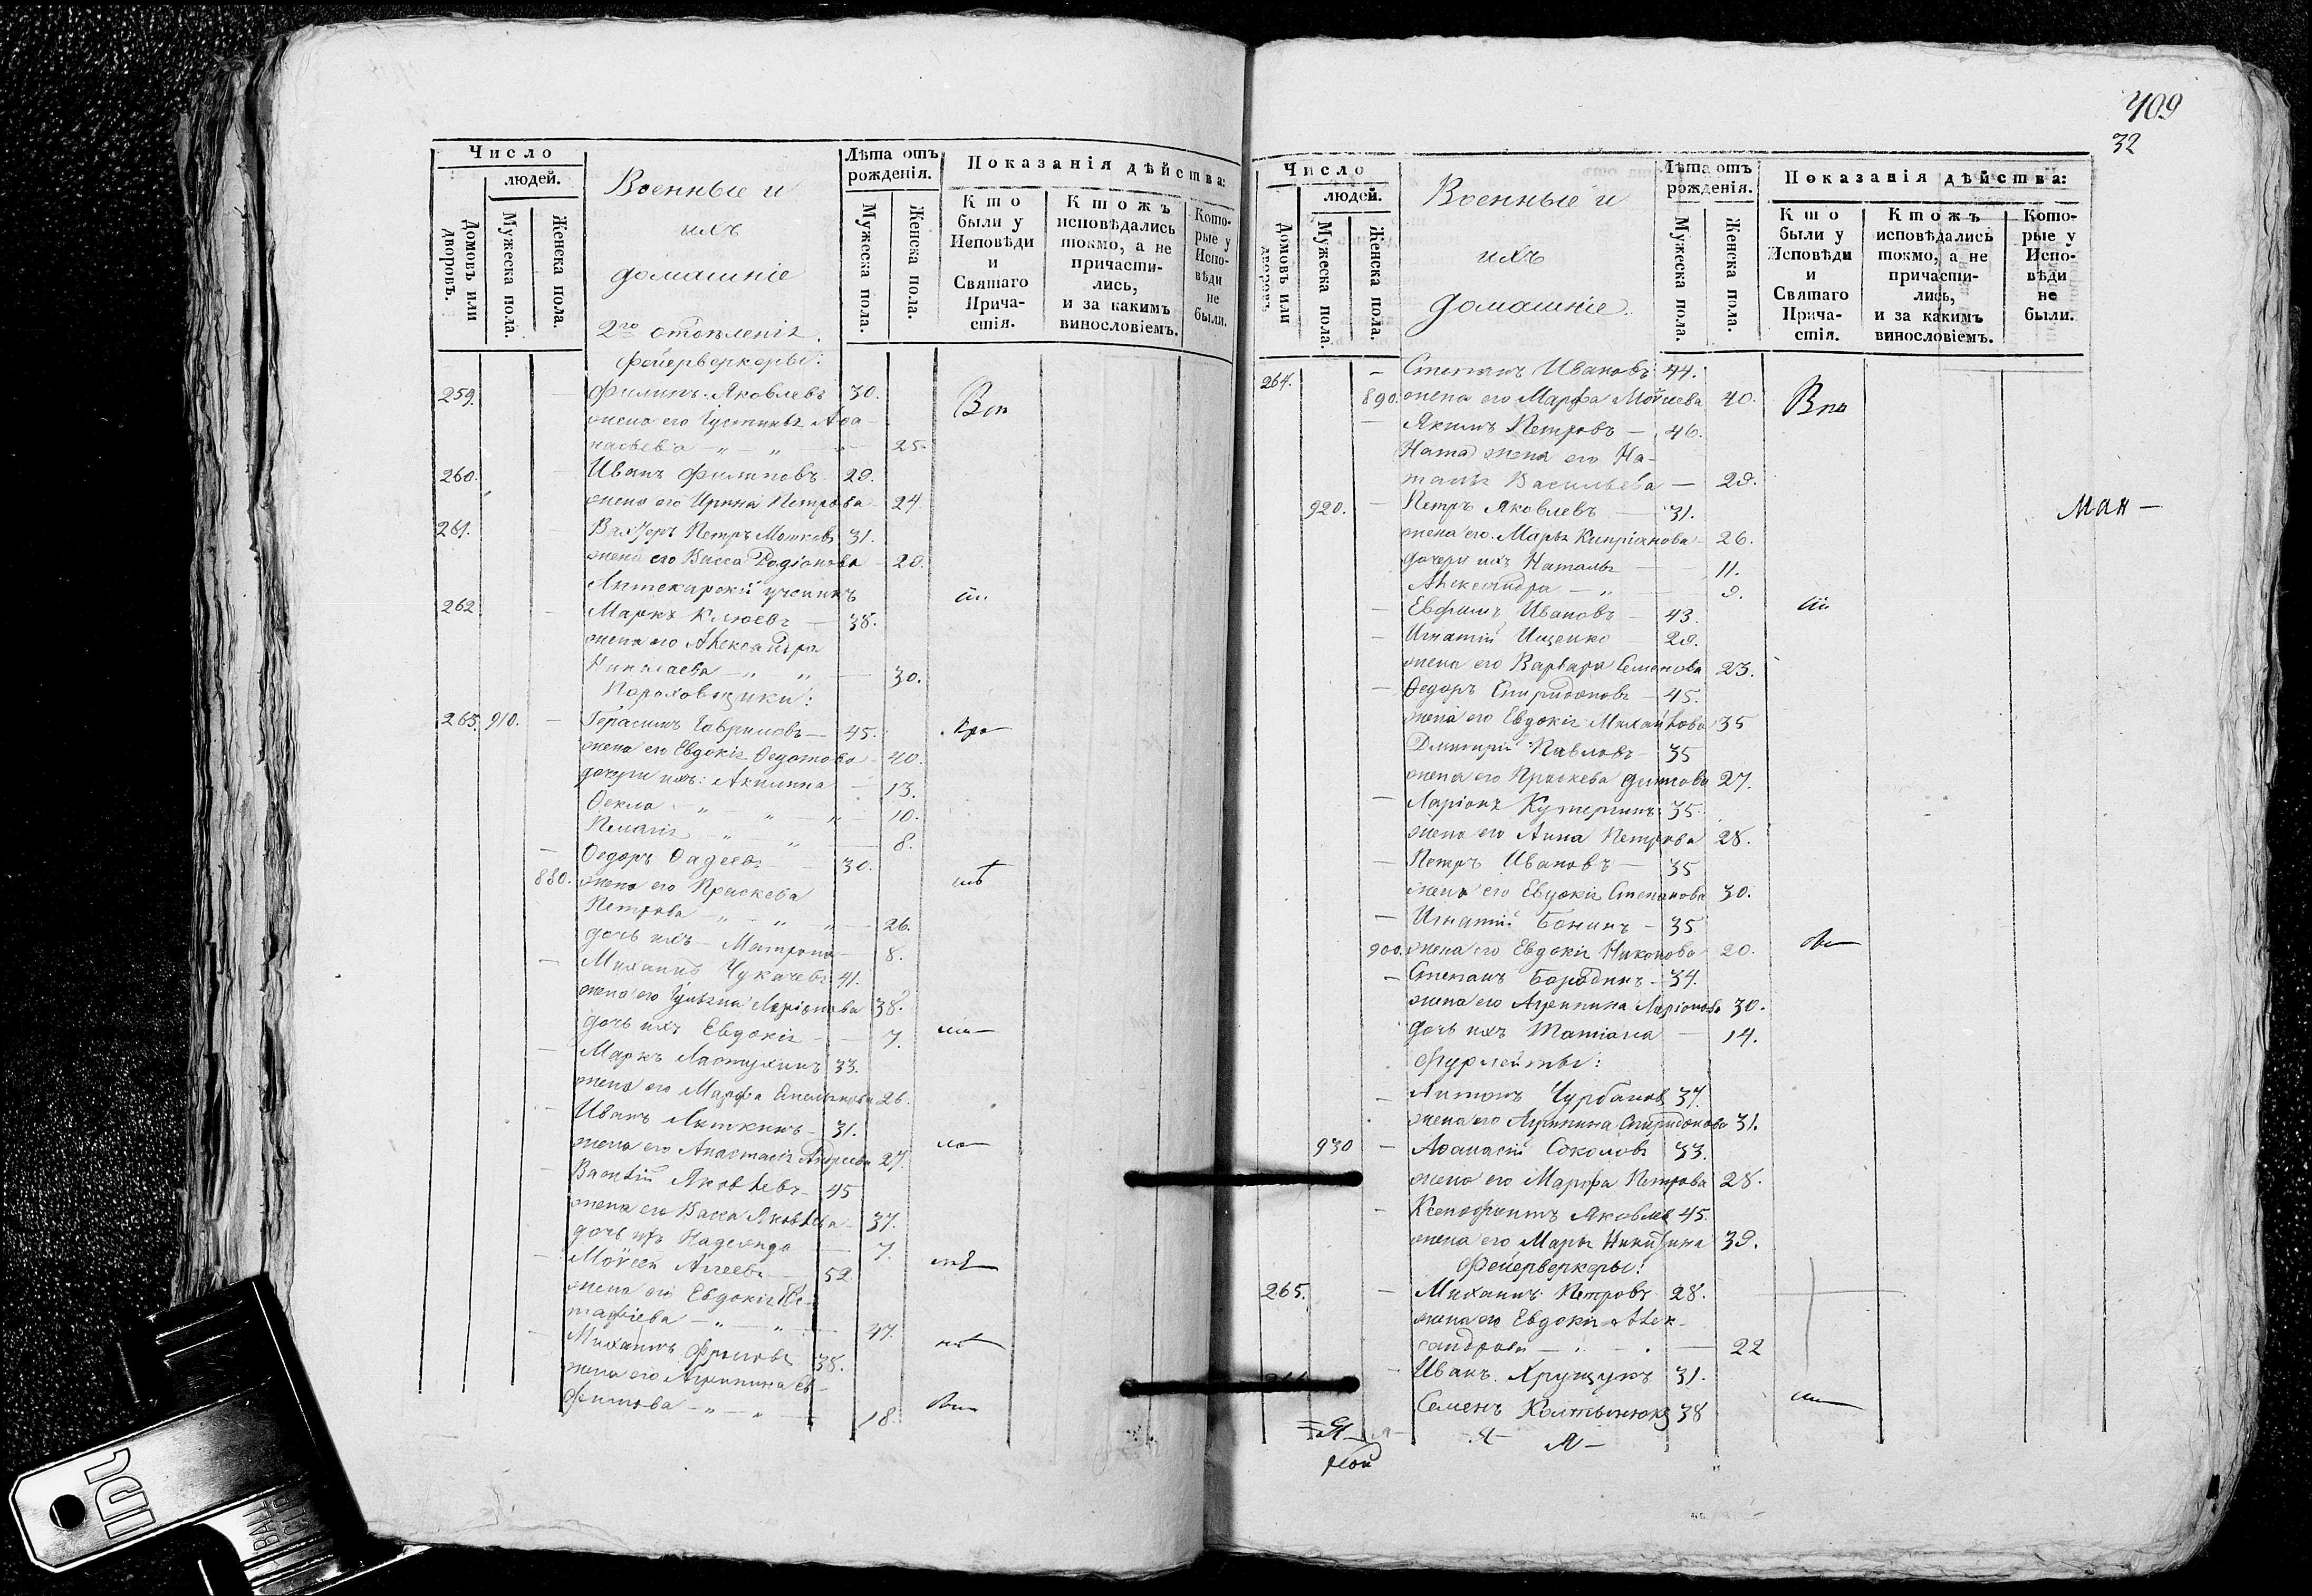 409
32
Число
людей.
Домовъ или дворовъ.
Мужеска пола.
Женска пола.
Военные и
ихъ
домашніе
2го отдѣленія.
Лѣта отъ рожденія.
Мужеска пола.
Женска пола.
Показанія дѣйства:
Кто были у Исповѣди и Святаго Причастія.
Ктожъ исповѣдались токмо, а не причастились, и за какимъ винословіемъ.
Которые у Исповѣди не были.
фейерверкеры:
259. — Филипъ Яковлевъ 30.
жена его Густинья Афа-
насьева — „ — „ 25.
260. — Иванъ Филиповъ 29.
жена его Ирина Петрова 24.
261. Вахтеръ Петръ Мошковъ 31.
жена его Васса Родіонова 20.
Аптекарскій ученикъ
262 — Маркъ Клюевъ — 38.
жена его Александра
Николаева — „ „ — 30.
Пороховщики:
263. 910. — Герасимъ Гавриловъ — 45.
жена его Евдокія Федотова 40.
дочери ихъ: Акилина — 13.
Ѳекла — „ „ — „ 10.
Пелагія — „ „ 8.
— Ѳедоръ Фадеевъ 30.
880. жена его Праскева
Петрова — „ — „ „ — 26.
дочь ихъ — Матрона — 8.
— Михаилъ Чукачевъ 41.
жена его Ульяна Ларіонова 38.
дочь ихъ Евдокія — 7.
— Маркъ Ластухинъ 33.
жена его Марфа 26.
— Иванъ Лыткинъ — 31.
жена его Анастасія Андреева 27.
— Василій Яковлевъ — 45
жена его Васса Яковлева — 37.
дочь ихъ Надежда — 7.
— Моѵсей Агеевъ — 52.
жена его Евдокія Ев-
стафіева — „ — „ — 47.
— Михаилъ Фроловъ 38.
жена его Агрипина Ев-
фимова — „ — „ — 18.
Число
людей.
Домовъ или дворовъ.
Мужеска пола.
Женска пола.
Военные и
ихъ
домашніе.
Лѣта отъ рожденія.
Мужеска пола.
Женска пола.
Показанія дѣйства:
Кто были у Исповѣди и Святаго Причастія.
Ктожъ исповѣдались токмо, а не причастились, и за какимъ винословіемъ.
Которые у Исповѣди не были.
264. — Степанъ Ивановъ 44.
890. жена его Марфа Моѵсеева 40.
— Якимъ Петровъ — 46.
жена его На-
талья Васильева — 29.
920. — Петръ Яковлевъ — 31.
жена его Марья Кипріанова 26.
дочери ихъ Наталья — 11.
Александра — „ — 9.
— Евфимъ Ивановъ — 43.
— Игнатій Ищенко — 29.
жена его Варвара Семенова 23.
— Ѳедоръ Спиридоновъ — 45.
жена его Евдокія Михайлова 35
Дмитрій Павловъ — 35
жена его Праскева 27.
— Ларіонъ Кутергинъ 35.
жена его Анна Петрова 28.
— Петръ Ивановъ — 35
жена его Евдокія Степанова 30.
— Игнатій Бонинъ — 35.
900. жена его Евдокія Никонова 20.
— Степанъ Бородинъ — 34.
жена его Агрипина Ларіонова 30.
дочь ихъ Татіана — 14.
Фурлейты:
— Антонъ Чурбанов 37.
жена его Агрипина Спиридонова 31.
930 — Афанасій Соколовъ 33.
жена его Марфа Петрова 28.
— Ксенофонтъ Яковлев 45.
жена его Марья Никитина 39.
Фейерверкеры:
265. — Михаилъ Петровъ 28.
жена его Евдокія Алек-
сандрова — 22
— Иванъ Хрущукъ 31.
Семенъ 38